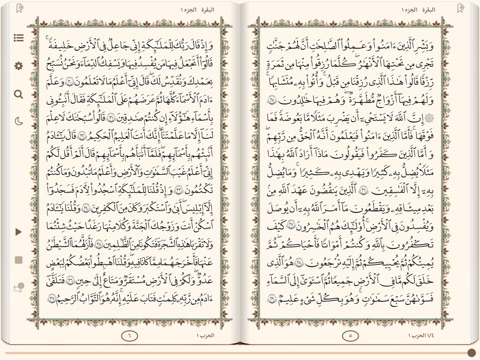 البقرة الجزء ١
وَبَشِّرِ ٱلَّذِينَ ءَامَنُوا۟ وَعَمِلُوا۟ ٱلصَّٰلِحَٰتِ أَنَّ لَهُمْ جَنَّٰتٍ
تَجْرِى مِن تَحْتِهَا ٱلْأَنْهَٰرُ ۖ كُلَّمَا رُزِقُوا۟ مِنْهَا مِن ثَمَرَةٍ
رِّزْقًا ۙ قَالُوا۟ هَٰذَا ٱلَّذِى رُزِقْنَا مِن قَبْلُ ۖ وَأُتُوا۟ بِهِۦ مُتَشَٰبِهًا ۖ
وَلَهُمْ فِيهَآ أَزْوَٰجٌ مُّطَهَّرَةٌ ۖ وَهُمْ فِيهَا خَٰلِدُونَ ٢٥
۞ إِنَّ ٱللَّهَ لَا يَسْتَحْىِۦٓ أَن يَضْرِبَ مَثَلًا مَّا بَعُوضَةً فَمَا
فَوْقَهَا ۚ فَأَمَّا ٱلَّذِينَ ءَامَنُوا۟ فَيَعْلَمُونَ أَنَّهُ ٱلْحَقُّ مِن رَّبِّهِمْ ۖ
وَأَمَّا ٱلَّذِينَ كَفَرُوا۟ فَيَقُولُونَ مَاذَآ أَرَادَ ٱللَّهُ بِهَٰذَا
مَثَلًا ۘ يُضِلُّ بِهِۦ كَثِيرًا وَيَهْدِى بِهِۦ كَثِيرًا ۚ وَمَا يُضِلُّ
بِهِۦٓ إِلَّا ٱلْفَٰسِقِينَ ٢٦ ٱلَّذِينَ يَنقُضُونَ عَهْدَ ٱللَّهِ مِنۢ
بَعْدِ مِيثَٰقِهِۦ وَيَقْطَعُونَ مَآ أَمَرَ ٱللَّهُ بِهِۦٓ أَن يُوصَلَ
وَيُفْسِدُونَ فِى ٱلْأَرْضِ ۚ أُو۟لَٰٓئِكَ هُمُ ٱلْخَٰسِرُونَ ٢٧ كَيْفَ
تَكْفُرُونَ بِٱللَّهِ وَكُنتُمْ أَمْوَٰتًا فَأَحْيَٰكُمْ ۖ ثُمَّ
يُمِيتُكُمْ ثُمَّ يُحْيِيكُمْ ثُمَّ إِلَيْهِ تُرْجَعُونَ ٢٨ هُوَ ٱلَّذِى
خَلَقَ لَكُم مَّا فِى ٱلْأَرْضِ جَمِيعًا ثُمَّ ٱسْتَوَىٰٓ إِلَى ٱلسَّمَآءِ
فَسَوَّىٰهُنَّ سَبْعَ سَمَٰوَٰتٍ ۚ وَهُوَ بِكُلِّ شَىْءٍ عَلِيمٌ ٢٩
١/٤ الحزب ١
٥
البقرة الجزء ١
وَإِذْ قَالَ رَبُّكَ لِلْمَلَٰٓئِكَةِ إِنِّى جَاعِلٌ فِى ٱلْأَرْضِ خَلِيفَةً ۖ
قَالُوٓا۟ أَتَجْعَلُ فِيهَا مَن يُفْسِدُ فِيهَا وَيَسْفِكُ ٱلدِّمَآءَ وَنَحْنُ نُسَبِّحُ
بِحَمْدِكَ وَنُقَدِّسُ لَكَ ۖ قَالَ إِنِّىٓ أَعْلَمُ مَا لَا تَعْلَمُونَ ٣٠ وَعَلَّمَ
ءَادَمَ ٱلْأَسْمَآءَ كُلَّهَا ثُمَّ عَرَضَهُمْ عَلَى ٱلْمَلَٰٓئِكَةِ فَقَالَ أَنۢبِـُٔونِى
بِأَسْمَآءِ هَٰٓؤُلَآءِ إِن كُنتُمْ صَٰدِقِينَ ٣١ قَالُوا۟ سُبْحَٰنَكَ لَا عِلْمَ
لَنَآ إِلَّا مَا عَلَّمْتَنَآ ۖ إِنَّكَ أَنتَ ٱلْعَلِيمُ ٱلْحَكِيمُ ٣٢ قَالَ يَٰٓـَٔادَمُ
أَنۢبِئْهُم بِأَسْمَآئِهِمْ ۖ فَلَمَّآ أَنۢبَأَهُم بِأَسْمَآئِهِمْ قَالَ أَلَمْ أَقُل لَّكُمْ
إِنِّىٓ أَعْلَمُ غَيْبَ ٱلسَّمَٰوَٰتِ وَٱلْأَرْضِ وَأَعْلَمُ مَا تُبْدُونَ وَمَا كُنتُمْ
تَكْتُمُونَ ٣٣ وَإِذْ قُلْنَا لِلْمَلَٰٓئِكَةِ ٱسْجُدُوا۟ لِـَٔادَمَ فَسَجَدُوٓا۟
إِلَّآ إِبْلِيسَ أَبَىٰ وَٱسْتَكْبَرَ وَكَانَ مِنَ ٱلْكَٰفِرِينَ ٣٤ وَقُلْنَا يَٰٓـَٔادَمُ
ٱسْكُنْ أَنتَ وَزَوْجُكَ ٱلْجَنَّةَ وَكُلَا مِنْهَا رَغَدًا حَيْثُ شِئْتُمَا
وَلَا تَقْرَبَا هَٰذِهِ ٱلشَّجَرَةَ فَتَكُونَا مِنَ ٱلظَّٰلِمِينَ ٣٥ فَأَزَلَّهُمَا ٱلشَّيْطَٰنُ
عَنْهَا فَأَخْرَجَهُمَا مِمَّا كَانَا فِيهِ ۖ وَقُلْنَا ٱهْبِطُوا۟ بَعْضُكُمْ لِبَعْضٍ
عَدُوٌّ ۖ وَلَكُمْ فِى ٱلْأَرْضِ مُسْتَقَرٌّ وَمَتَٰعٌ إِلَىٰ حِينٍ ٣٦ فَتَلَقَّىٰٓ
ءَادَمُ مِن رَّبِّهِۦ كَلِمَٰتٍ فَتَابَ عَلَيْهِ ۚ إِنَّهُۥ هُوَ ٱلتَّوَّابُ ٱلرَّحِيمُ ٣٧
٦
الحزب ١